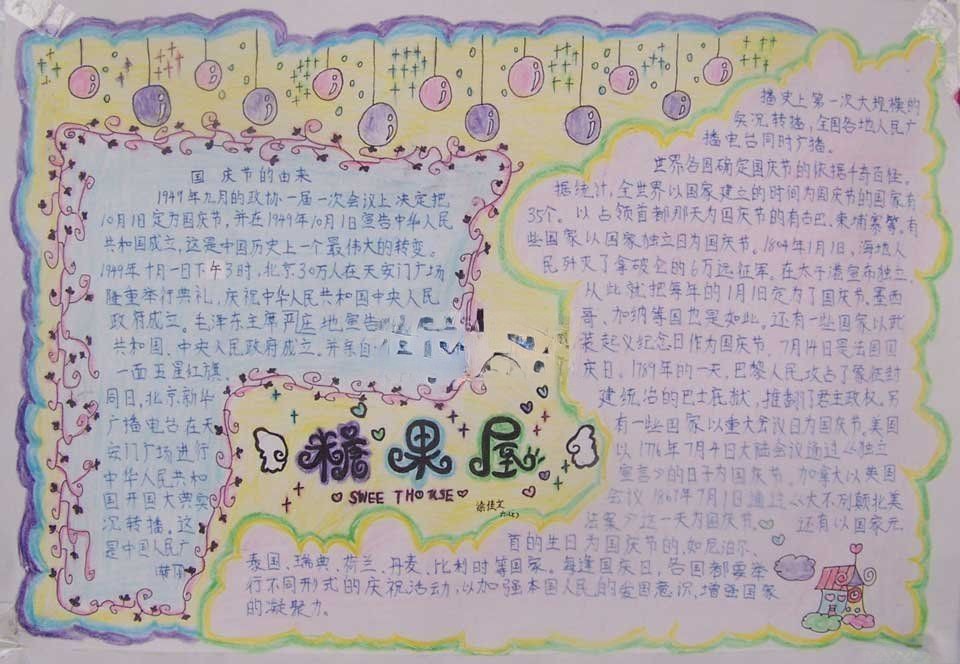 国庆节的由来
1949年九月的政协一届一次会议上决定把
10月1日定为国庆节,并在1949年10月1日宣告中华人民
共和国成立。这是中国历史上一个最伟大的转变。
1949年十月一日下午3时,北京30万人在天安门广场
隆重举行典礼,庆祝中华人民共和国中央人民
政府成立。毛泽东主席严庄地宣告
共和国、中央人民政府成立。并亲自
一面五星红旗
同日,北京新华
广播电台在天
安门广场进行
中华人民共和
国开国大典实
况转播。这
是中国人民广
播史上第一次大规模的
实况转播,全国各地人民广
播电台同时广播。
世界各国确定国庆节的依据千奇百怪。
据统计,全世界以国家建立的时间为国庆节的国家有
35个。以占领首都那天为国庆节的有古巴、柬埔寨等。有
些国家以国家独立日为国庆节。1804年1月1日,海地人
民歼灭了拿破仑的6万远征军。在太子港宣布独立,
从此就把每年的1月1日定为了国庆节。墨西
哥、加纳等国也是如此。还有一些国家以武
装起义纪念日作为国庆节。7月14日是法国国
庆日。1789年的一天,巴黎人民攻占了象征封
建统治的巴士底狱,推翻了君主政权。另
有一些国家以重大会议日为国庆节。美国
以1776年7月4日大陆会议通过《独立
宣言》的日子为国庆节。加拿大以英国
会议1867年7月1日通过《大不列颠北美
法案》这一天为国庆节。还有以国家元
首的生日为国庆节的,如尼泊尔、
泰国、瑞典、荷兰、丹麦、比利时等国家。每逢国庆日,各国都要举
行不同形式的庆祝活动,以加强本国人民的爱国意识,增强国家
的凝聚力。
糖果屋
SWEE THOUSE